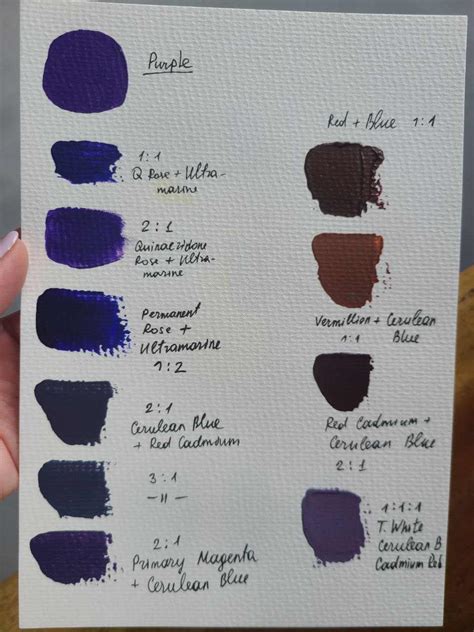 Purple
1:1
Q Rose + Ultra-
marine
2:1
Quinacridone
Rose + Ultra-
marine
Permanent
Rose +
Ultramarine
1:2
2:1
Cerulean Blue
+ Red Cadmium
3:1
-11-
2:1
Primary Magenta
+ Cerulean Blue
Red + Blue 1:1
Vermillion + Cerulean
Blue
1:1
Red Cadmium +
Cerulean Blue
2:1
1:1:1
T. White
Cerulean B
Cadmium